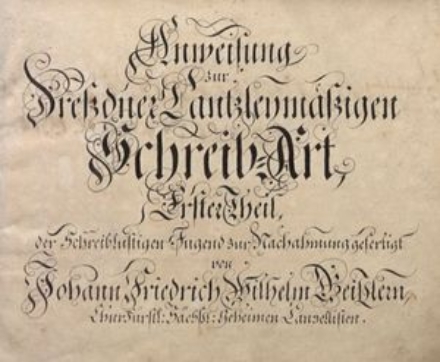 Anweisung
zur
Dreßdner Cantzleymäßigen
Schreib=Art,
Erster Theil,
der Schreiblustigen Jugend zur Nachahmung gefertigt
von
Johann Friedrich Wilhelm
Geheimen Cancellisten.